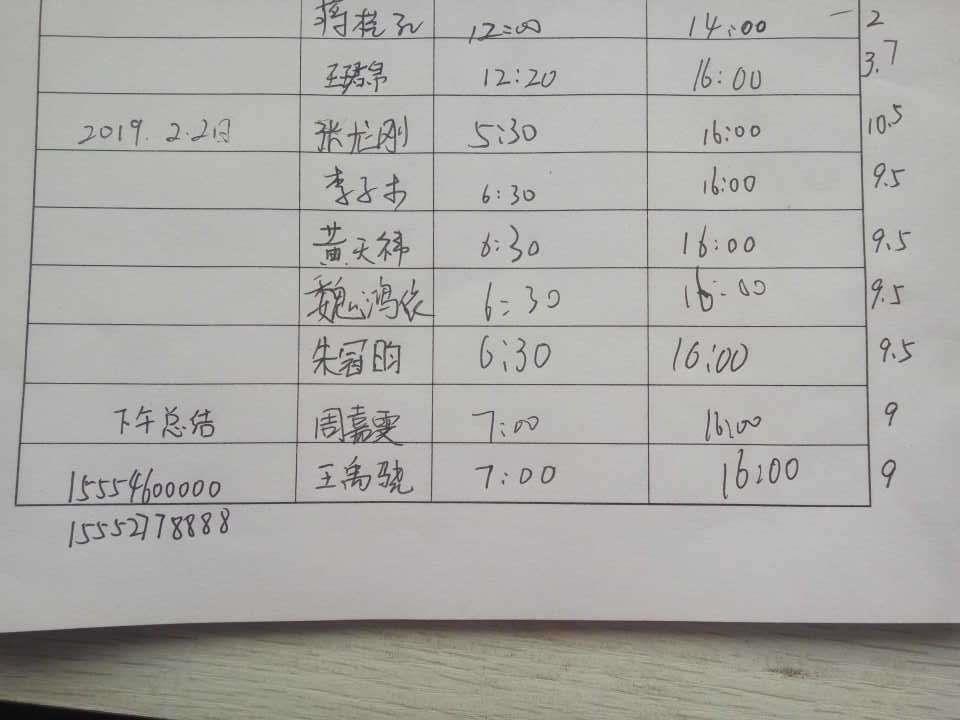 蒋桂孔 12:00 14:00 — 2
王珺帛 12:20 16:00 3.7
2019.2.2日 张尤刚 5:30 16:00 10.5
李子木 6:30 16:00 9.5
黄天祎 6:30 16:00 9.5
魏鸿依 6:30 16:00 9.5
朱冠昀 6:30 16:00 9.5
下午总结 周嘉雯 7:00 16:00 9
15554600000 王禹骁 7:00 16:00 9
15552778888